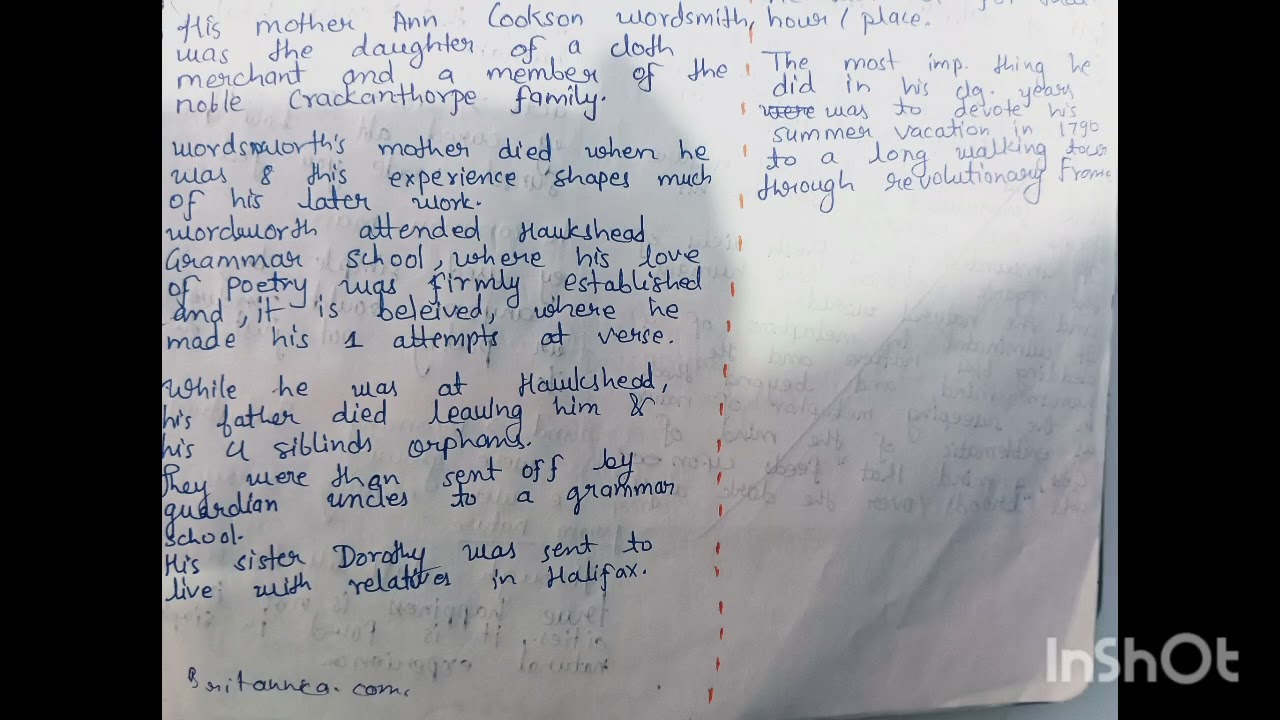 His mother Ann Cookson wordsmith,
was the daughter of a cloth
merchant and a member of the
noble Crackanthorpe family.
wordsworth's mother died when he
was 8 this experience shapes much
of his later work.
wordsworth attended Hawkshead
Grammar School, where his love
of poetry was firmly established
and, it is beleived, where he
made his 1 attempts at verse.
while he was at Hawkshead,
his father died leaving him &
his 4 siblinds orphans.
They were than sent off by
guardian uncles to a grammar
school.
His sister Dorothy was sent to
live with relatives in Halifax.
Britannica.com.
hour / place.
The most imp. thing he
did in his clg. years
were was to devote his
summer vacation in 1790
to a long walking tour
through revolutionary France
InShOt